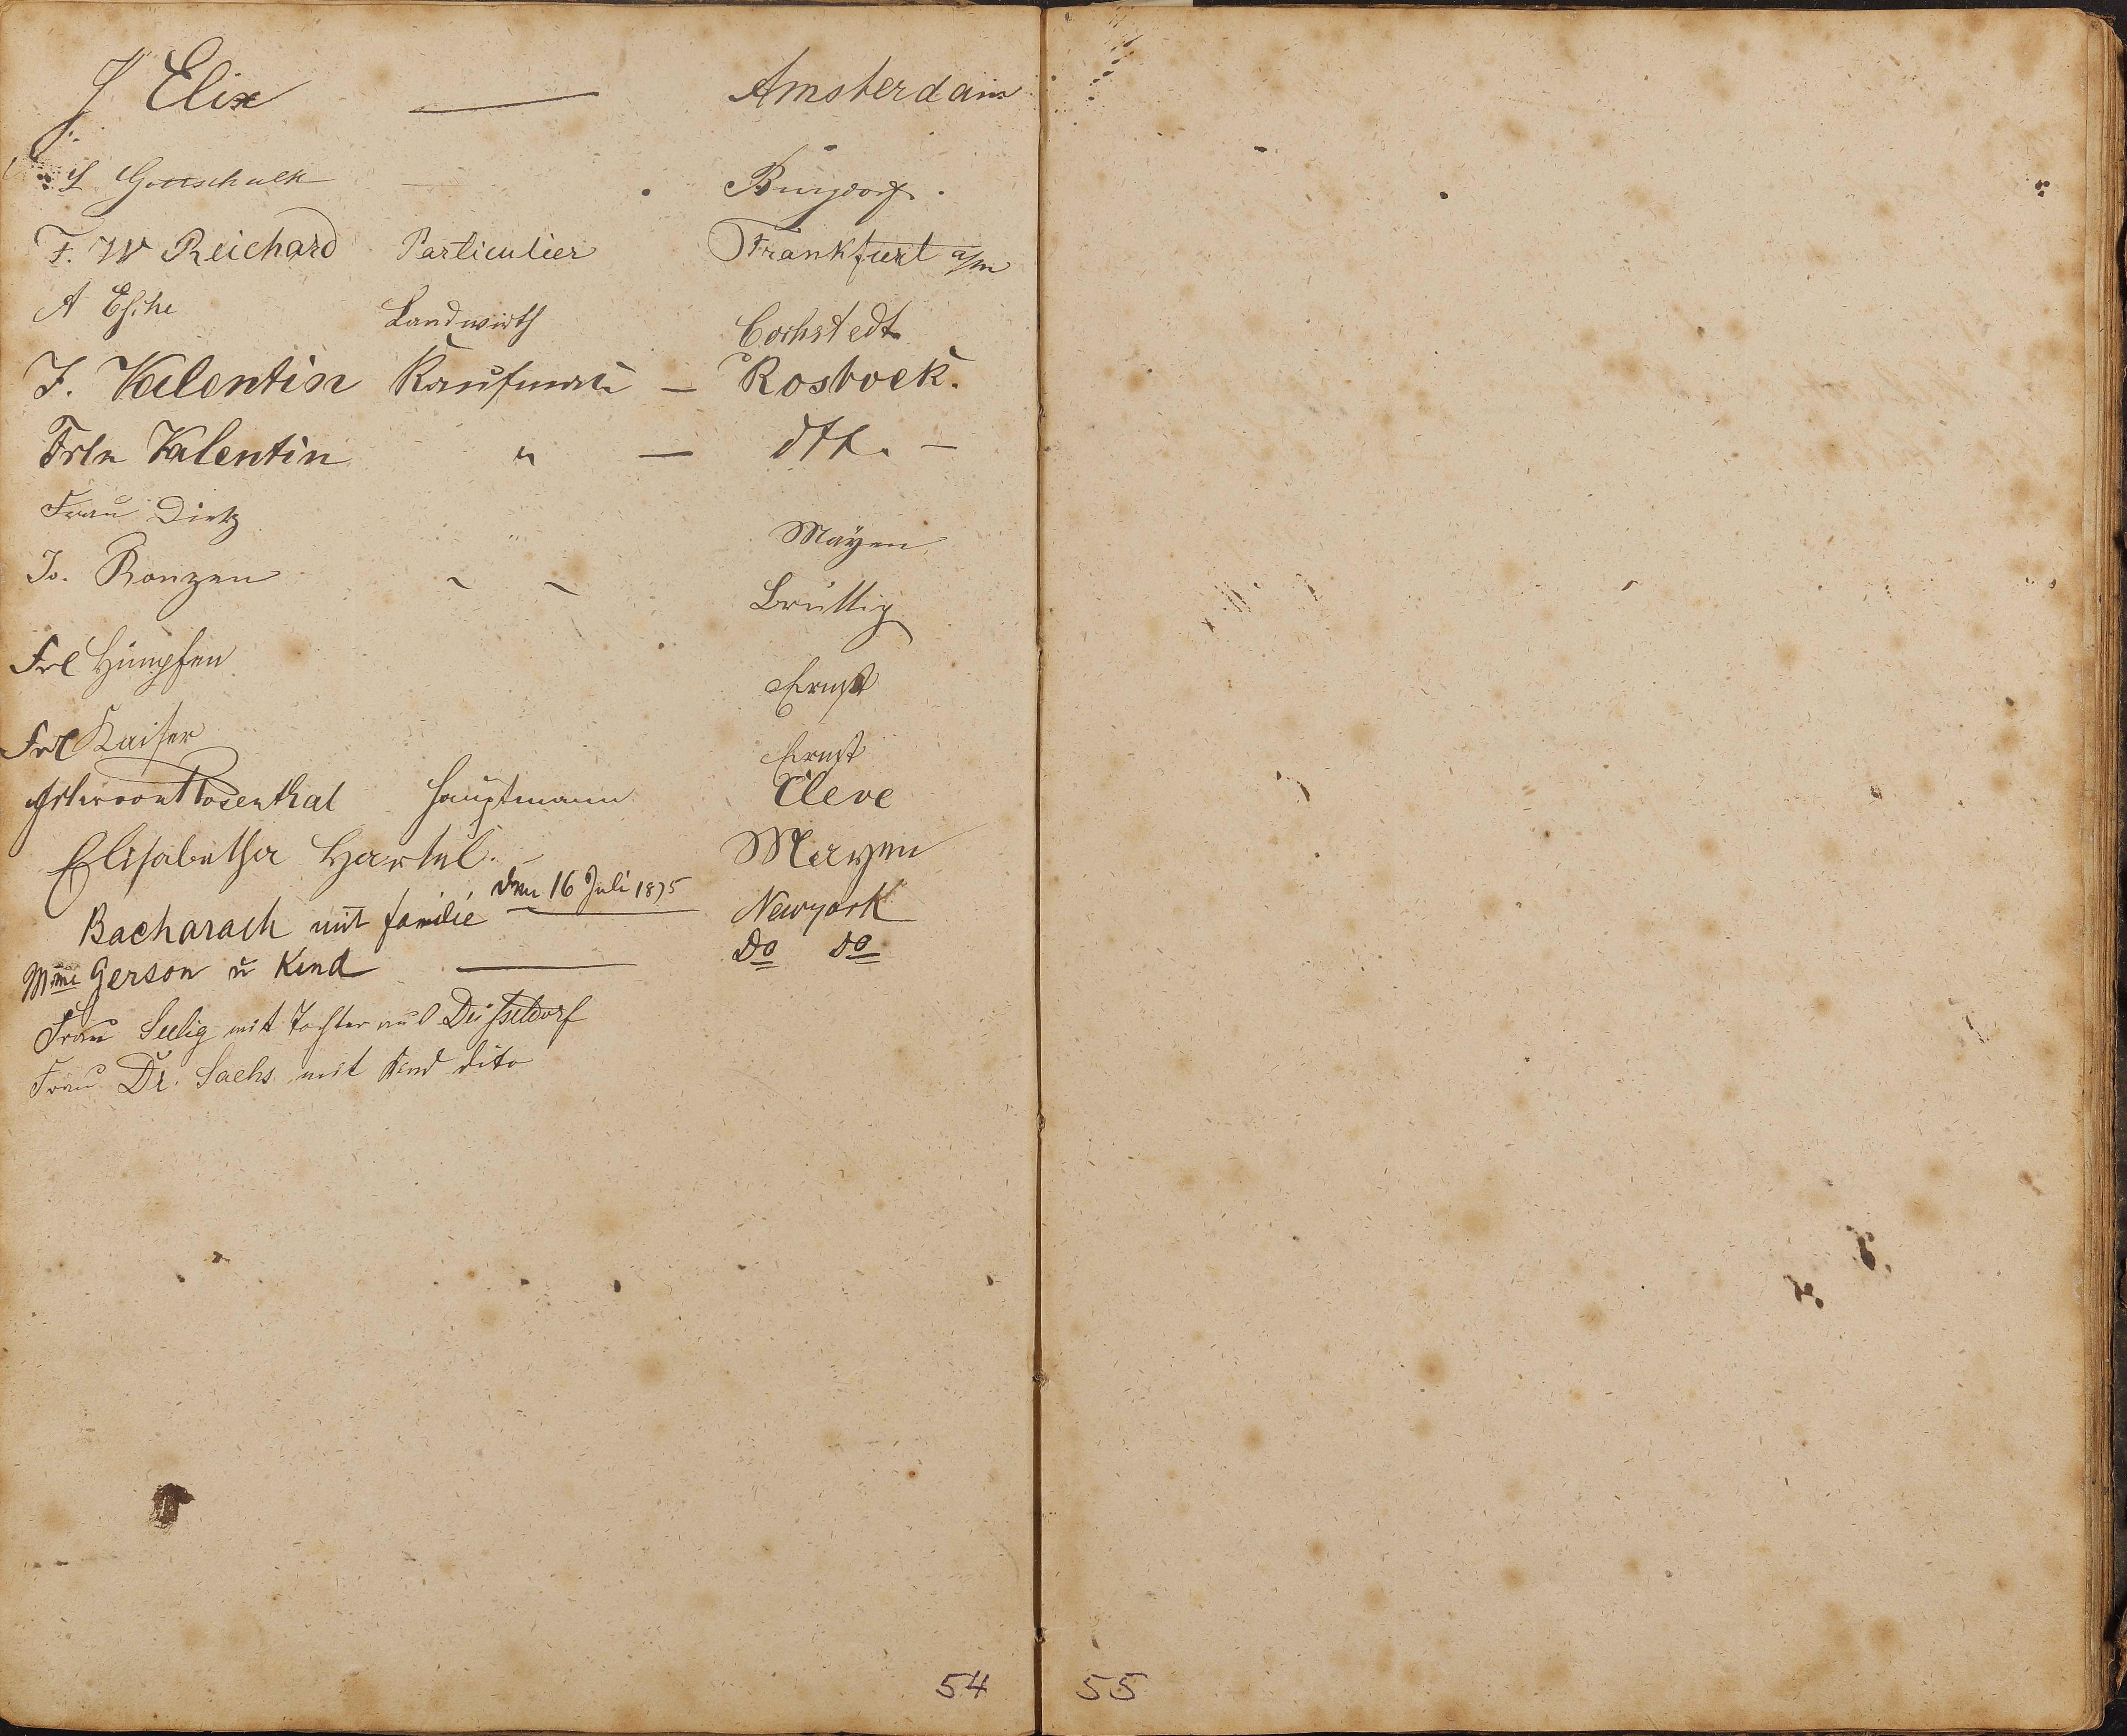 J Elix — Amsterdam
S Gottschalk — Burgdorf.
F. W Reichard Particulier Frankfurt a/m
A Esche Landwirth Cochstedt
J. Valentin Kaufmann — Rostock.
Frln Valentin " — dto. —
Frau Dietz " Mayen
Jo. Bruttig
Frl Hümpfen Ernst
Frl Kaiser Ernst
von Rosenthal Hauptmann Cleve
Elisabetha Hartel. Mayen
den 16 Juli 1875
Bacharach mit familie Newyork
Mme Gerson u Kind — Do do
Frau Seelig mit Tochter aus Düsseldorf
Frau Dr. Sachs mit Kind dito
54 55